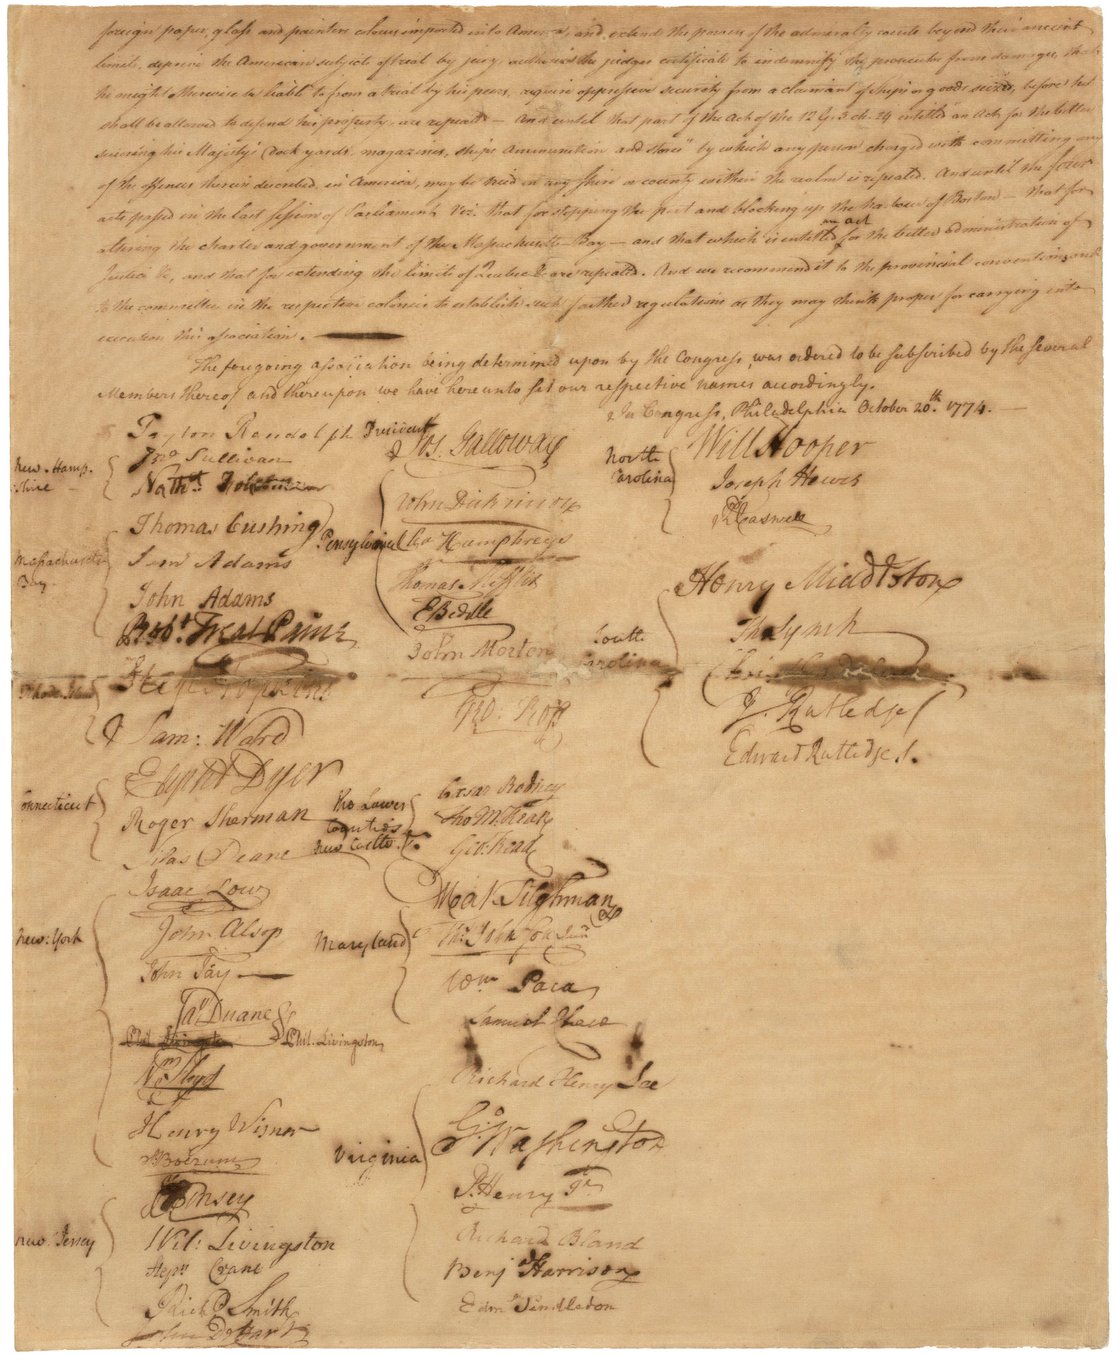 foreign paper, glass and painters colours imported into America, and extend the powers of the admiralty courts beyond their ancient
limits, deprive the American subject of trial by jury, authorise the judges certificate to indemnify the prosecutor from damages, that
he might otherwise be liable to from a trial by his peers, require oppressive security from a claimant of ships or goods seized, before he
shall be allowed to defend his property, are repealed — And until that part of the Act of the 12 G. 3. ch. 24 entitled "an Act for the better
securing his Majesty's dock yards, magazines, ships Ammunition and stores" by which any person charged with committing any
of the offences therein described, in America, may be tried in any shire or county within the realm is repealed. And until the four
acts passed in the last session of Parliament, Viz. that for stopping the port and blocking up the harbour of Boston — that for
altering the charter and government of the Massachusetts-Bay — and that which is entitled an act for the better administration of
Justice &c, and that for extending the limits of Quebec &c are repealed. And we recommend it to the provincial conventions and
to the committees in the respective colonies to establish such farther regulations as they may think proper for carrying into
execution this association.
The foregoing association being determined upon by the Congress, was ordered to be subscribed by the several
Members thereof and thereupon we have hereunto set our respective names accordingly.
In Congress, Philadelphia October 20th. 1774.
Peyton Randolph President
New-Hamp.
shire
Jno Sullivan
Nathl. Folsom
Massachusetts
Bay
Thomas Cushing
Sam Adams
John Adams
Robt Treat Paine
Rhode Island
Step Hopkins
Sam: Ward
Connecticut
Elipht Dyer
Roger Sherman
Silas Deane
New-York
Isaac Low
John Alsop
John Jay
Jas Duane
Phil. Livingston
Phil. Livingston
Wm Floyd
Henry Wisner
S: Boerum
New Jersey
J. Kinsey
Wil: Livingston
Stepn Crane
Richd Smith
John De Hart
Pensylvania
Jos. Galloway
John Dickinson
Cha Humphreys
Thomas Mifflin
E Biddle
John Morton
Geo: Ross
The Lower
Counties
New Castle
Cæsar Rodney
Tho M:Kean
Geo: Read
Maryland
Mat Tilghman
Ths. Johnson Junr
Wm Paca
Samuel Chase
Virginia
Richard Henry Lee
Go Washington
P. Henry Jr
Richard Bland
Benj Harrison
Edmd Pendleton
North
Carolina
Will Hooper
Joseph Hewes
Rd Caswell
South
Carolina
Henry Middleton
Tho Lynch
J. Rutledge
Edward Rutledge